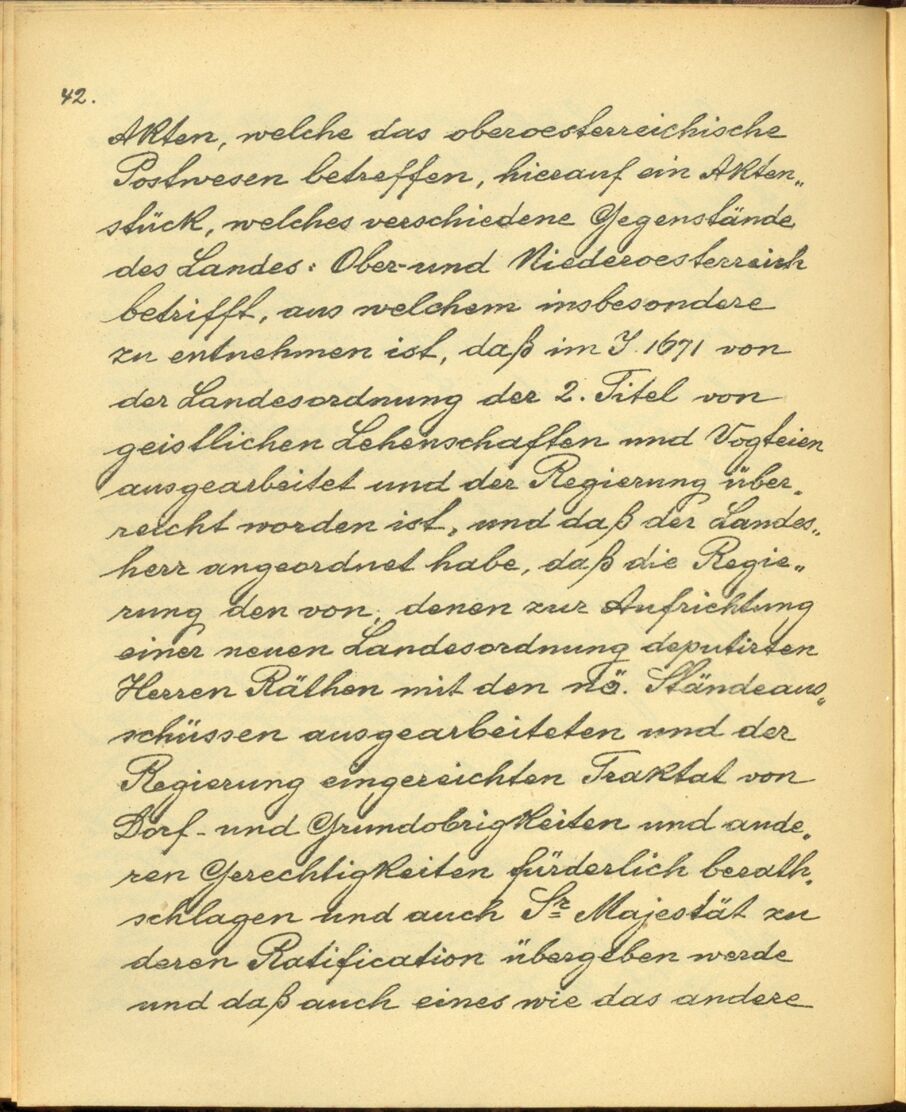 42.
Akten, welche das oberoesterreichische
Postwesen betreffen, hierauf ein Akten„
stück, welches verschiedene Gegenstände
des Landes: Ober- und Niederoesterreich
betrifft, aus welchem insbesondere
zu entnehmen ist, daß im J. 1671 von
der Landesordnung der 2. Titel von
geistlichen Lehenschaften und Vogteien
ausgearbeitet und der Regierung über„
reicht worden ist, und daß der Landes„
herr angeordnet habe, daß die Regie„
rung den von denen zur Aufrichtung
einer neuen Landesordnung deputirten
Herren Räthen mit den nö. Ständeaus„
schüssen ausgearbeiteten und der
Regierung eingereichten Traktat von
Dorf- und Grundobrigkeiten und ande„
ren Gerechtigkeiten fürderlich berath„
schlagen und auch Sr Majestät zu
deren Ratification übergeben werde
und daß auch eines wie das andere